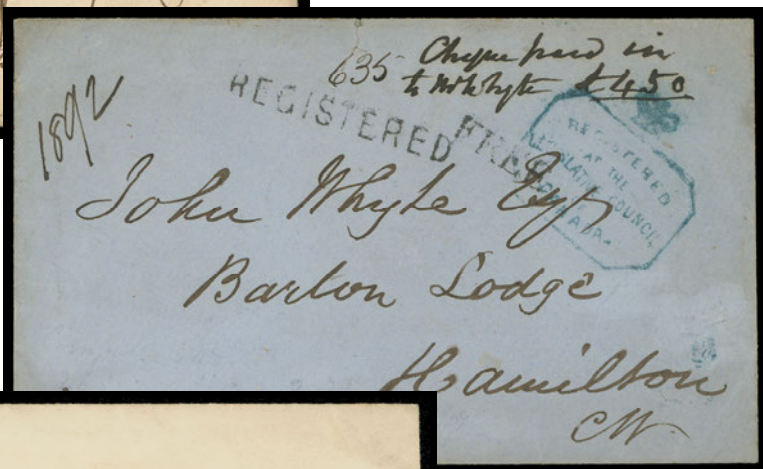 635 Cheque paid in
to Mr Whyte £450
1892
REGISTERED
FREE
REGISTERED
AT THE
LEGISLATIVE COUNCIL
CANADA.
John Whyte Esqr
Barton Lodge
Hamilton
CW